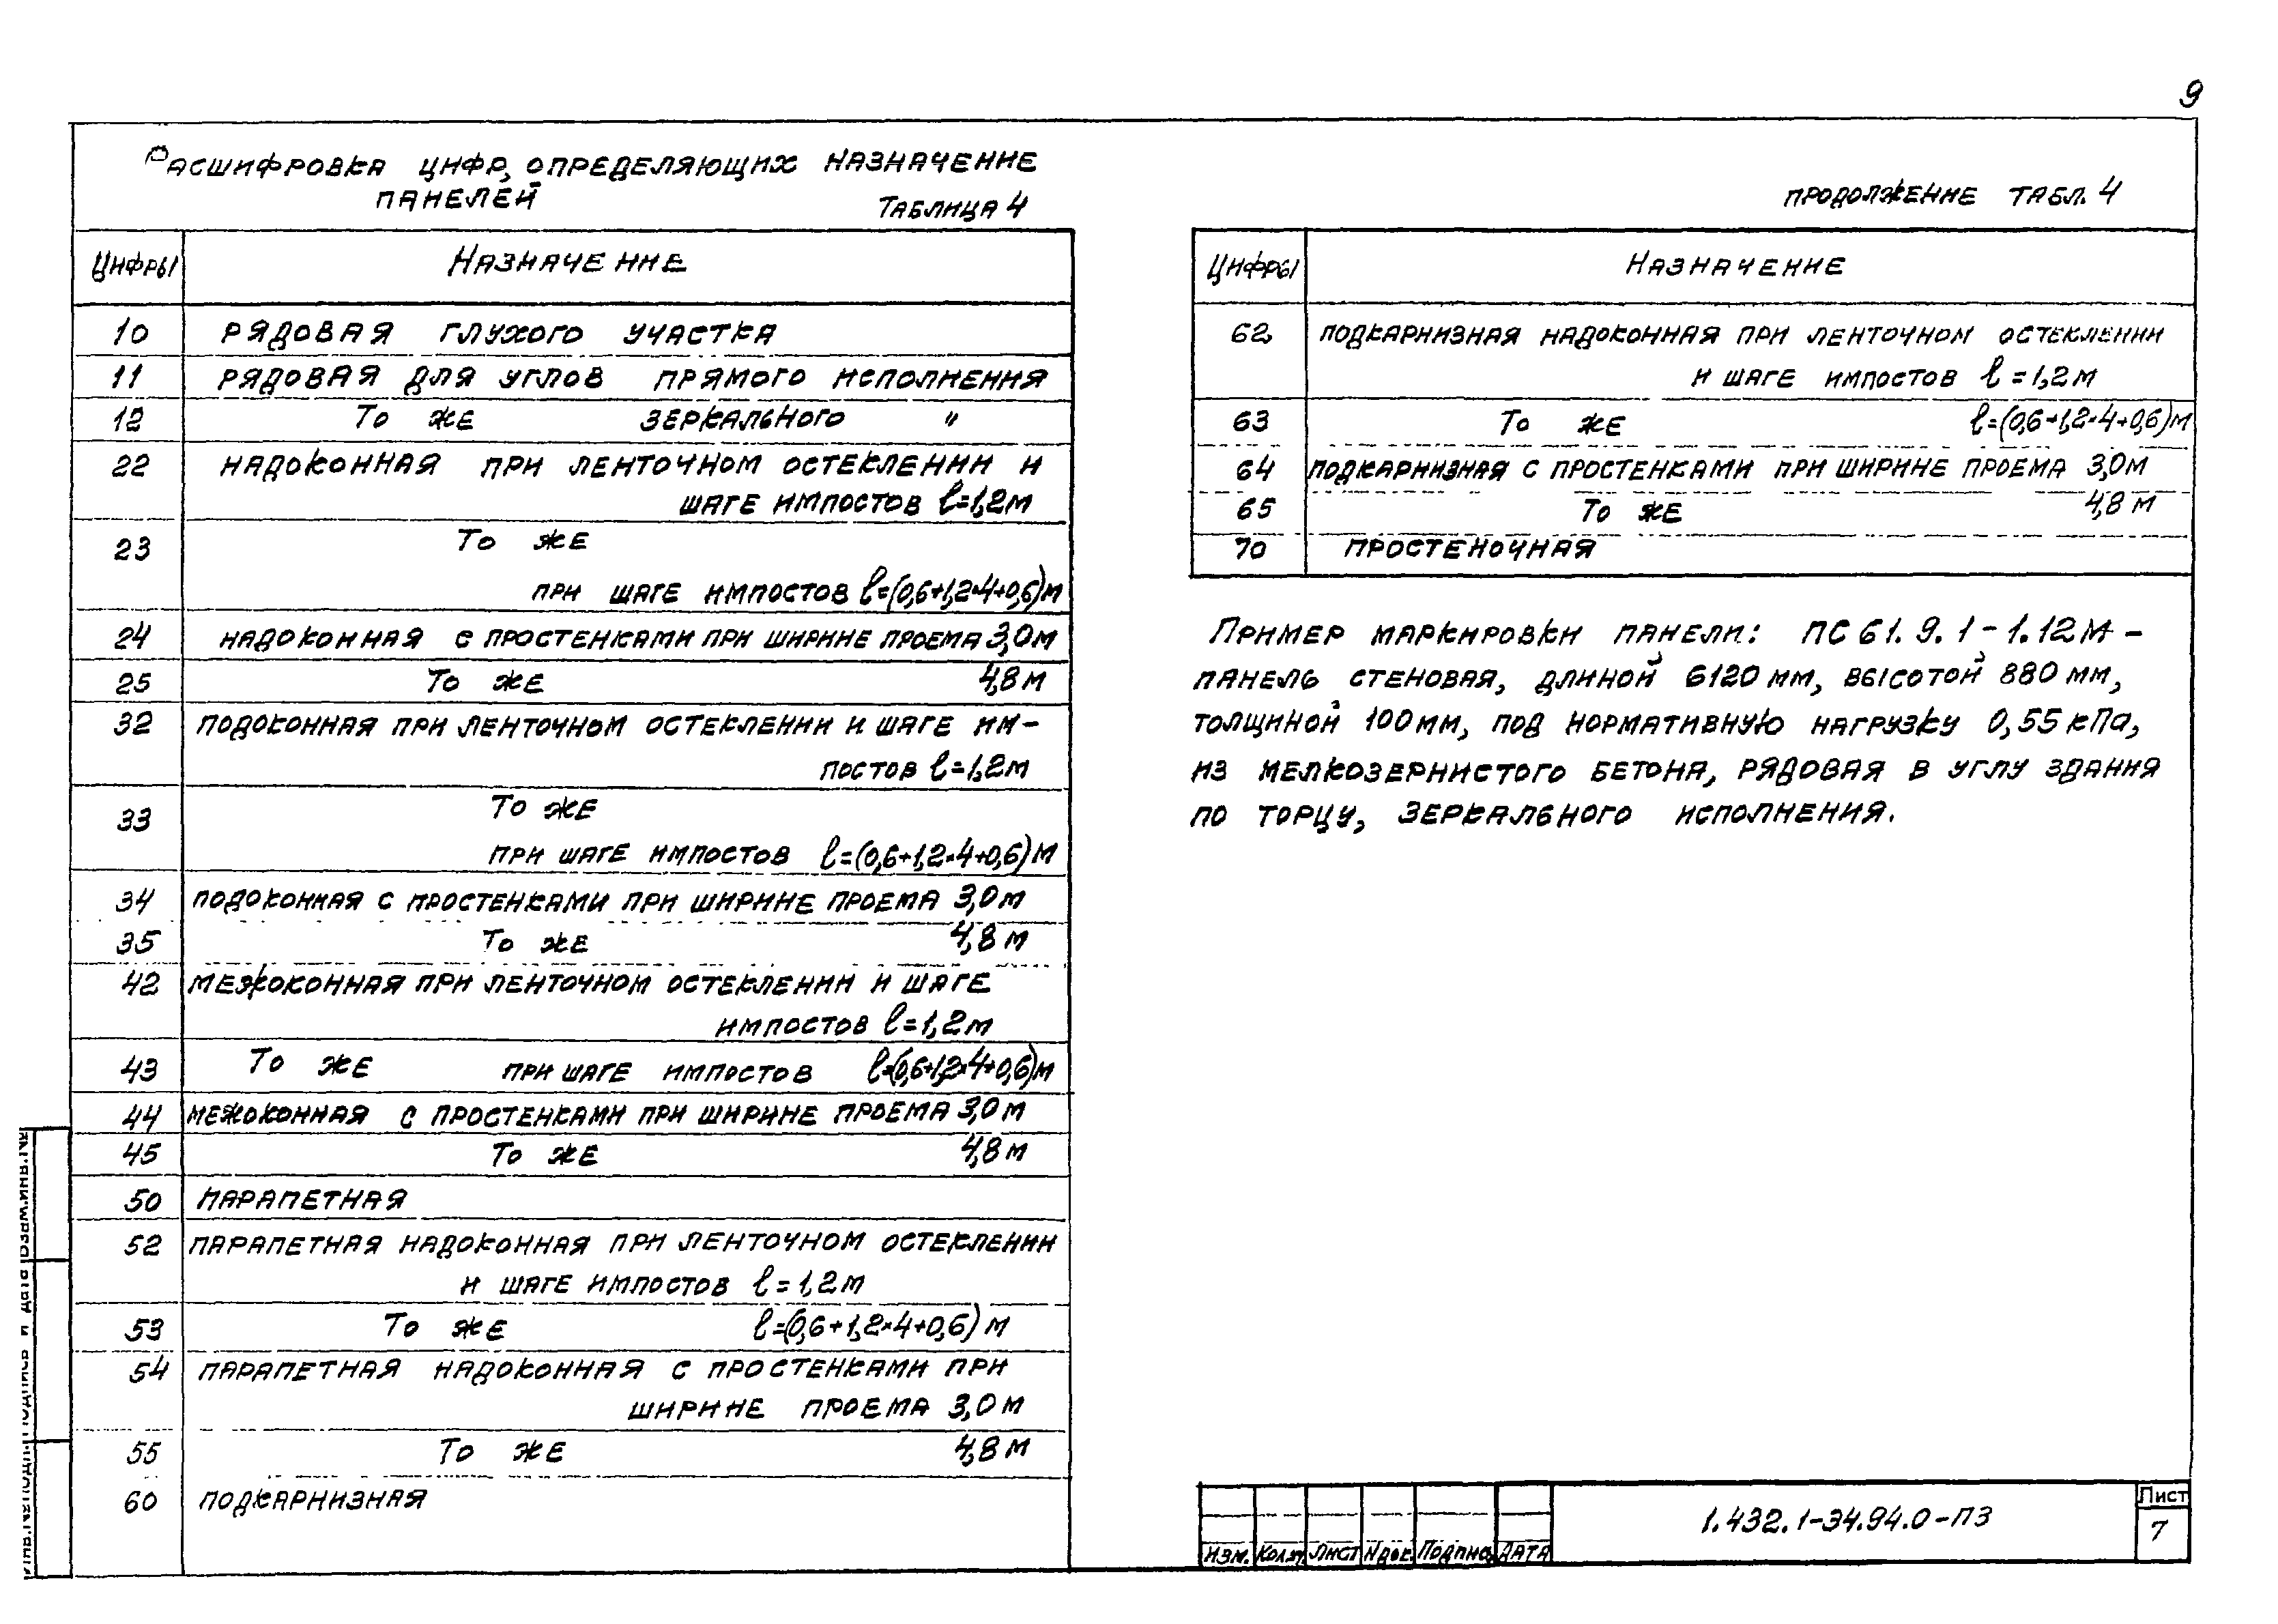 9
Расшифровка цифр, определяющих назначение
панелей
Таблица 4
Цифры Назначение
10 рядовая глухого участка
11 рядовая для углов прямого исполнения
12 То же зеркального "
22 надоконная при ленточном остеклении и
шаге импостов ℓ=1,2м
23 То же
при шаге импостов ℓ=(0,6+1,2×4+0,6)м
24 надоконная с простенками при ширине проема 3,0м
25 То же 4,8м
32 подоконная при ленточном остеклении и шаге им-
постов ℓ=1,2м
33 То же
при шаге импостов ℓ=(0,6+1,2×4+0,6)м
34 подоконная с простенками при ширине проема 3,0м
35 То же 4,8м
42 межоконная при ленточном остеклении и шаге
импостов ℓ=1,2м
43 То же при шаге импостов ℓ=(0,6+1,2×4+0,6)м
44 межоконная с простенками при ширине проема 3,0м
45 То же 4,8м
50 парапетная
52 парапетная надоконная при ленточном остеклении
и шаге импостов ℓ=1,2м
53 То же ℓ=(0,6+1,2×4+0,6)м
54 парапетная надоконная с простенками при
ширине проема 3,0м
55 То же 4,8м
60 подкарнизная
продолжение табл. 4
Цифры Назначение
62 подкарнизная надоконная при ленточном остеклении
и шаге импостов ℓ=1,2м
63 То же ℓ=(0,6+1,2×4+0,6)м
64 подкарнизная с простенками при ширине проема 3,0м
65 То же 4,8м
70 простеночная
Пример маркировки панели: ПС 61.9.1-1.12М-
панель стеновая, длиной 6120 мм, высотой 880 мм,
толщиной 100мм, под нормативную нагрузку 0,55 кПа,
из мелкозернистого бетона, рядовая в углу здания
по торцу, зеркального исполнения.
1.432.1-34.94.0-ПЗ
Лист
7
Изм. Кол.уч Лист Nдок. Подпись Дата